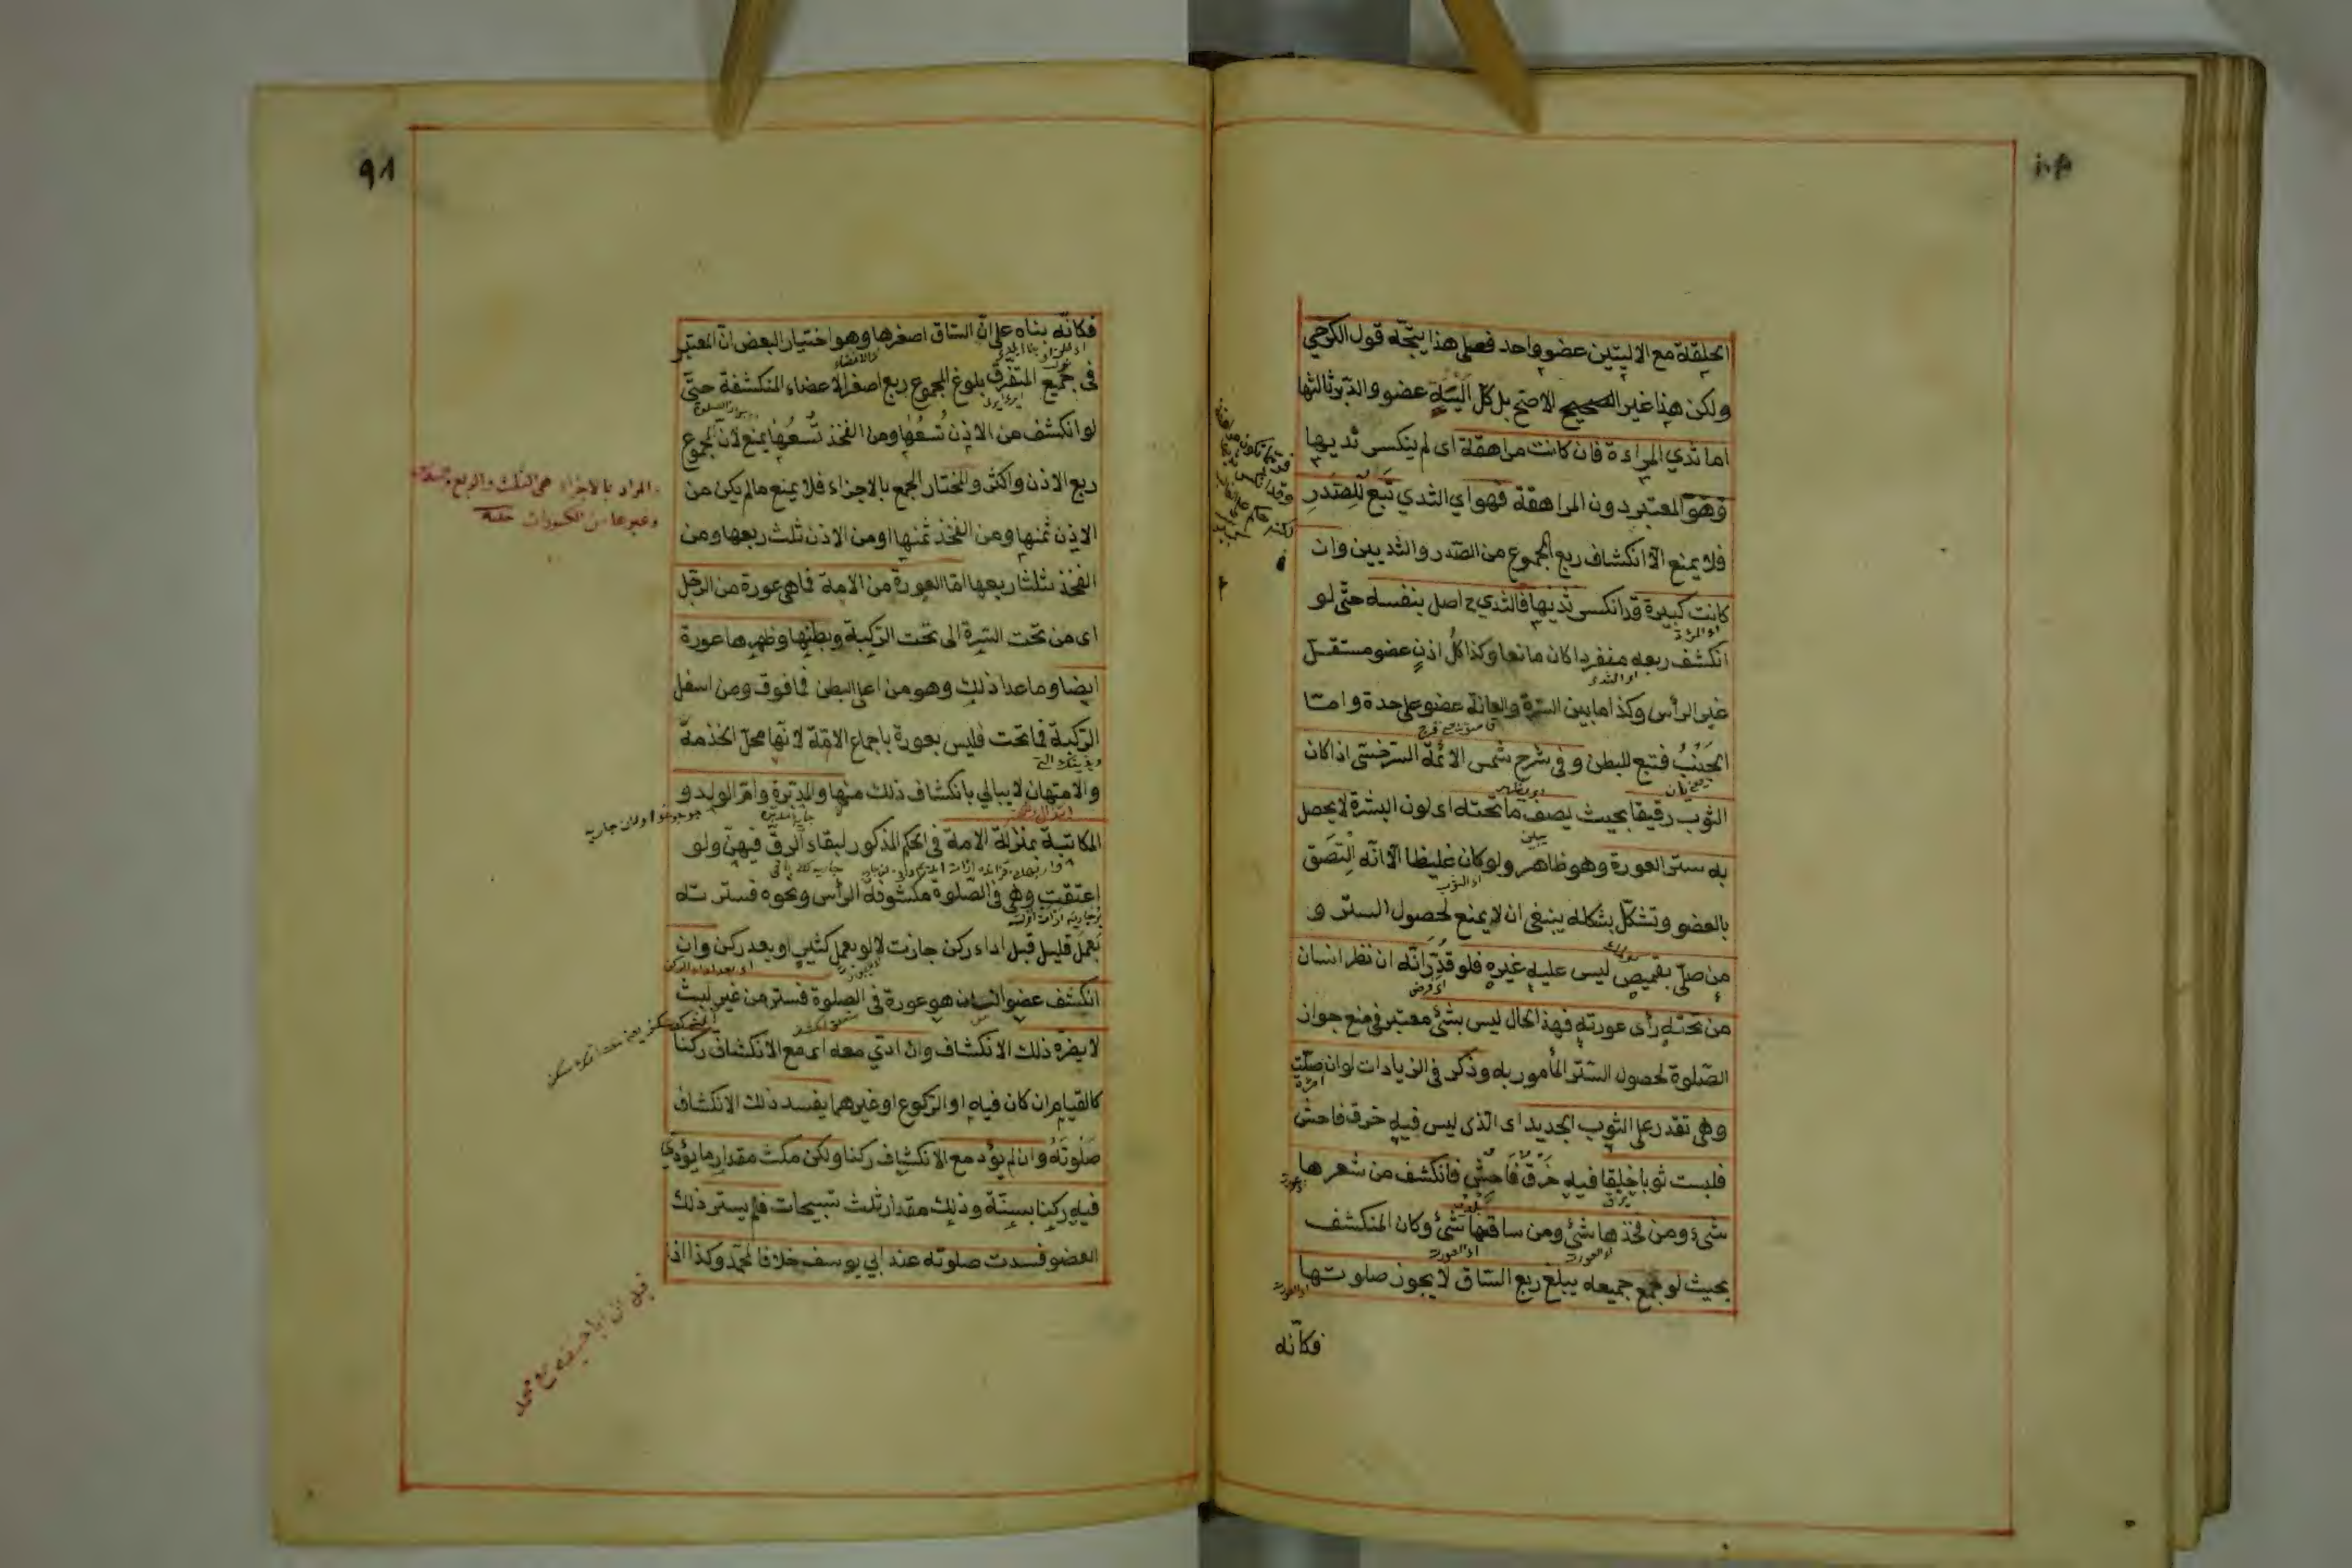 الحلقة مع الاليتين عضو واحد فعلى هذا يتجه قول الكرخي
ولكن هذا غير الصحيح الاصح بل كل الية عضو والدبر ثالثها
اما ثدي المراءة فان كانت مراهقة اى لم ينكسر ثديها
وهو المعتبر دون المراهقة فهو اي الثدي تبع للصدر
فلا يمنع الا انكشاف ربع المجموع من الصدر والثديين وان
كانت كبيرة قد انكسر ثديها فالثدي ح اصل بنفسه حتى لو
انكشف ربعه منفردا كان مانعا وكذا كل اذن عضو مستقل
غير الرأس وكذا ما بين السرة والعانة عضو على حدة واما
الجنب فتبع للبطن وفي شرح شمس الائمة السرخسى اذا كان
الثوب رقيقا بحيث يصف ما تحته اى لون البشرة لا يحصل
به ستر العورة وهو ظاهر ولو كان غليظا الا انه التصق
بالعضو وتشكل بشكله ينبغى ان لا يمنع لحصول الستر و
من صلى بقميص ليس عليه غيره فلو قدر انه ان نظر انسان
من تحته رأى عورته فهذا الحال ليس بشئ معتبر فى منع جواز
الصلوة لحصول الستر المأمور به وذكر فى الزيادات لو ان صلت
امرأة
وهى تقدر على الثوب الجديد اى الذى ليس فيه خرق فاحش
فلبست ثوبا خلقا فيه خرق فاحش فانكشف من شعرها
شىء ومن فخذها شئ ومن ساقها شئ وكان المنكشف
بحيث لو جمع جميعه يبلغ ربع الساق لا يجوز صلوتها
فكانه
٩٨
فكانه بناه على ان الساق اصغرها وهو اختيار البعض ان المعتبر
فى جميع المتفرق بلوغ المجموع ربع اصغر الاعضاء المنكشفة حتى
لو انكشف من الاذن تسعها ومن الفخذ تسعها يمنع لان المجموع
ربع الاذن واكثر والمختار الجمع بالاجزاء فلا يمنع ما لم يكن من
الاذن ثمنها ومن الفخذ ثمنها او من الاذن ثلث ربعها ومن
الفخذ ثلثا ربعها اما العورة من الامة فما هى عورة من الرجل
اى من تحت السرة الى تحت الركبة وبطنها وظهرها عورة
ايضا وما عدا ذلك وهو من اعلى البطن فما فوق ومن اسفل
الركبة فما تحت فليس بعورة باجماع الامة لانها محل الخدمة
والامتهان لا يبالي بانكشاف ذلك منها والمدبرة وام الولد و
المكاتبة بمنزلة الامة فى الحكم المذكور لبقاء الرق فيهن ولو
اعتقت وهى فى الصلوة مكشوفة الرأس ونحوه فسترته
بعمل قليل قبل اداء ركن جازت لا لو بعمل كثير او بعد ركن وان
انكشف عضو انسان هو عورة فى الصلوة فستر من غير لبث
لا يضره ذلك الانكشاف وان ادى معه اى مع الانكشاف ركنا
كالقيام ان كان فيه او الركوع او غيرهما يفسد ذلك الانكشاف
صلوته وان لم يؤد مع الانكشاف ركنا ولكن مكث مقدار ما يؤدى
فيه ركنا بسنة وذلك مقدار ثلث تسبيحات فلم يستر ذلك
العضو فسدت صلوته عند ابي يوسف خلافا لمحمد وكذا اذا
المراد بالاجزاء هى الثلث والربع
وغيرها من الكسورات
قيل ان ابا حنيفة مع محمد